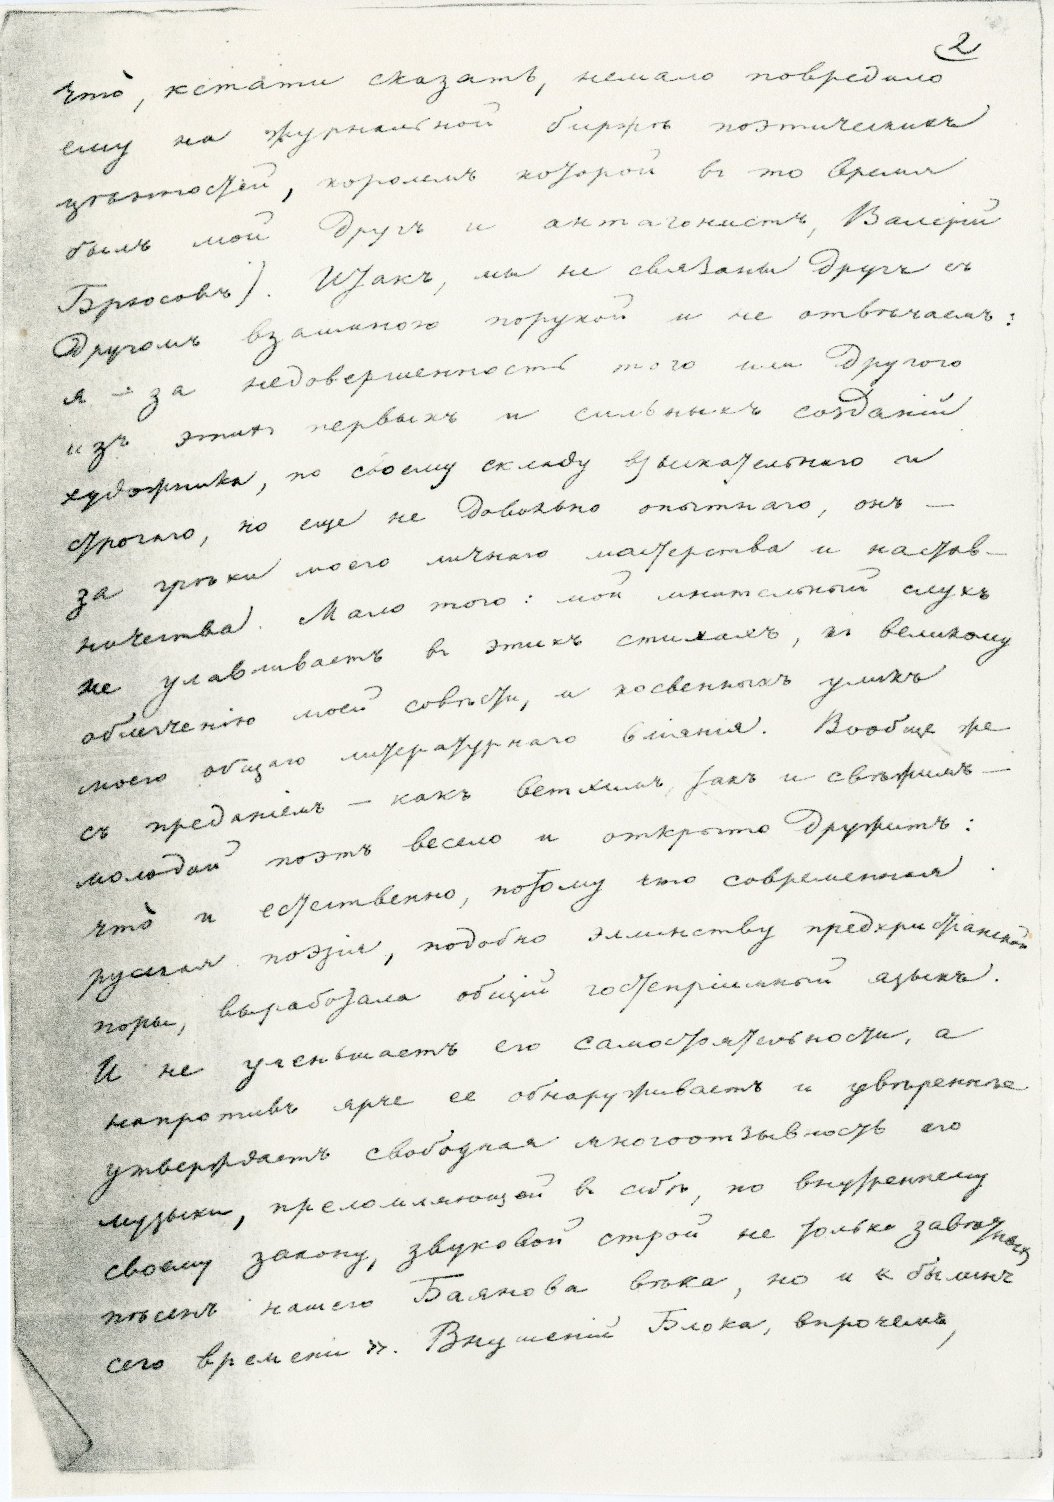 2
что̀, кстати сказать, немало повредило
ему на журнальной биржѣ поэтическихъ
цѣнностей, королемъ которой въ то время
былъ мой другъ и антагонистъ, Валерій
Брюсовъ). Итакъ, мы не связаны другъ съ
другомъ взаимною порукой и не отвѣчаемъ:
я – за недовершенность того или другого
изъ этихъ первыхъ и сильныхъ созданій
художника, по своему складу взыскательнаго и
строгаго, но еще не довольно опытнаго, онъ —
за грѣхи моего личнаго мастерства и настав-
ничества. Мало того: мой мнительный слухъ
не улавливаетъ въ этихъ стихахъ, къ великому
облегченію моей совѣсти, и косвенныхъ уликъ
моего общаго литературнаго вліянія. Вообще же
съ преданіемъ – какъ ветхимъ, такъ и свѣжимъ –
молодой поэтъ весело и открыто дружитъ:
что̀ и естественно, потому что современная
русская поэзія, подобно эллинству предхристіанской
поры, выработала общій гостепріимный языкъ.
И не уменьшаетъ его самостоятельности, а
напротивъ ярче ее обнаруживаетъ и увѣреннѣе
утверждаетъ свободная многоотзывность его
музыки, преломляющей въ себѣ, по внутреннему
своему закону, звуковой строй не только завѣтныхъ
пѣсенъ нашего Баянова вѣка, но и «былинъ
сего времени». Внушеній Блока, впрочемъ,